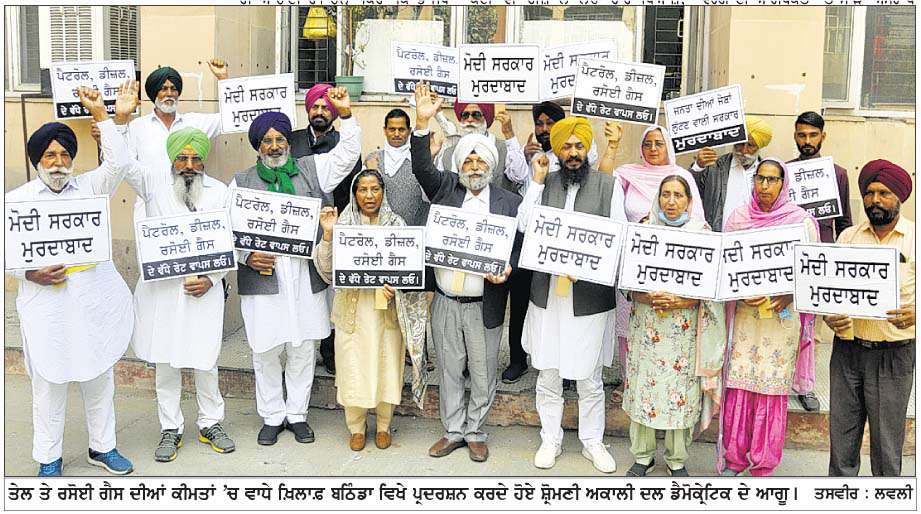 ਪੈਟਰੋਲ, ਡੀਜ਼ਲ,
ਰਸੋਈ ਗੈਸ
ਦੇ ਵੱਧੇ ਰੇਟ ਵਾਪਸ ਲਓ।
ਮੋਦੀ ਸਰਕਾਰ
ਮੁਰਦਾਬਾਦ
ਪੈਟਰੋਲ, ਡੀਜ਼ਲ,
ਰਸੋਈ ਗੈਸ
ਮੋਦੀ ਸਰਕਾਰ
ਮੁਰਦਾਬਾਦ
ਮੋਦੀ ਸਰਕਾਰ
ਮੁਰਦਾਬਾਦ
ਪੈਟਰੋਲ, ਡੀਜ਼ਲ,
ਰਸੋਈ ਗੈਸ
ਦੇ ਵੱਧੇ ਰੇਟ ਵਾਪਸ ਲਓ।
ਜਨਤਾ ਦੀਆਂ ਜੇਬਾਂ
ਲੁੱਟਣ ਵਾਲੀ ਸਰਕਾਰ
ਮੁਰਦਾਬਾਦ
ਮੋਦੀ ਸਰਕਾਰ
ਮੁਰਦਾਬਾਦ
ਪੈਟਰੋਲ, ਡੀਜ਼ਲ,
ਰਸੋਈ ਗੈਸ
ਦੇ ਵੱਧੇ ਰੇਟ ਵਾਪਸ ਲਓ।
ਪੈਟਰੋਲ, ਡੀਜ਼ਲ,
ਰਸੋਈ ਗੈਸ
ਦੇ ਵੱਧੇ ਰੇਟ ਵਾਪਸ ਲਓ।
ਪੈਟਰੋਲ, ਡੀਜ਼ਲ,
ਰਸੋਈ ਗੈਸ
ਦੇ ਵੱਧੇ ਰੇਟ ਵਾਪਸ ਲਓ।
ਪੈਟਰੋਲ, ਡੀਜ਼ਲ,
ਰਸੋਈ ਗੈਸ
ਦੇ ਵੱਧੇ ਰੇਟ ਵਾਪਸ ਲਓ।
ਮੋਦੀ ਸਰਕਾਰ
ਮੁਰਦਾਬਾਦ
ਮੋਦੀ ਸਰਕਾਰ
ਮੁਰਦਾਬਾਦ
ਮੋਦੀ ਸਰਕਾਰ
ਮੁਰਦਾਬਾਦ
ਮੋਦੀ ਸਰਕਾਰ
ਮੁਰਦਾਬਾਦ
ਤੇਲ ਤੇ ਰਸੋਈ ਗੈਸ ਦੀਆਂ ਕੀਮਤਾਂ 'ਚ ਵਾਧੇ ਖ਼ਿਲਾਫ਼ ਬਠਿੰਡਾ ਵਿਖੇ ਪ੍ਰਦਰਸ਼ਨ ਕਰਦੇ ਹੋਏ ਸ਼੍ਰੋਮਣੀ ਅਕਾਲੀ ਦਲ ਡੈਮੋਕ੍ਰੇਟਿਕ ਦੇ ਆਗੂ। ਤਸਵੀਰ : ਲਵਲੀ